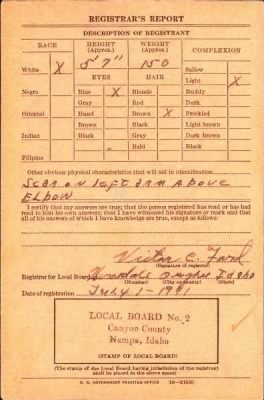 REGISTRAR'S REPORT
DESCRIPTION OF REGISTRANT
RACE HEIGHT (Approx.) WEIGHT (Approx.) COMPLEXION
5' 7" 150
Sallow
White X EYES HAIR Light X
Negro Blue X Blonde Ruddy
Gray Red Dark
Oriental Hazel Brown X Freckled
Brown Black Light brown
Indian Black Gray Dark brown
Bald Black
Filipino
Other obvious physical characteristics that will aid in identification
Scar on left arm above
Elbow
I certify that my answers are true; that the person registered has read or has had
read to him his own answers; that I have witnessed his signature or mark and that
all of his answers of which I have knowledge are true, except as follows:
Victor C. Ford
(Signature of registrar)
Registrar for Local Board Owyhee Idaho
(Number) (City or county) (State)
Date of registration July 1-1941
LOCAL BOARD No. 2
Canyon County
Nampa, Idaho
(STAMP OF LOCAL BOARD)
(The stamp of the Local Board having jurisdiction of the registrant
shall be placed in the above space)
U. S. GOVERNMENT PRINTING OFFICE